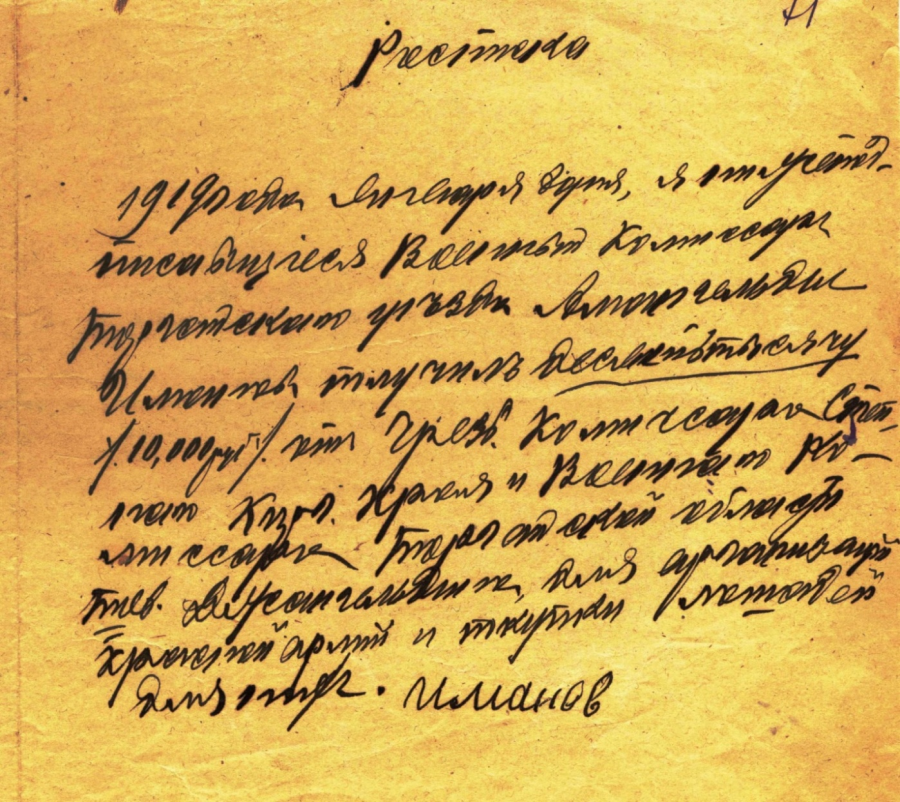 71
Росписка
1919 года Января 8 дня, я нижепод-
писавшиеся Военный Комиссаръ
Тургайскаго уѣзда Амангельды
Имановъ получилъ десять тысячу
/.10,000 руб./. отъ Чрезв. Комиссара Степ-
наго Кирг. Края и Военнаго Ко-
миссара Тургайской области
тов. Джангильдина, для организаціи
Красной арміи и покупки лошадей
для нихъ. Иманов